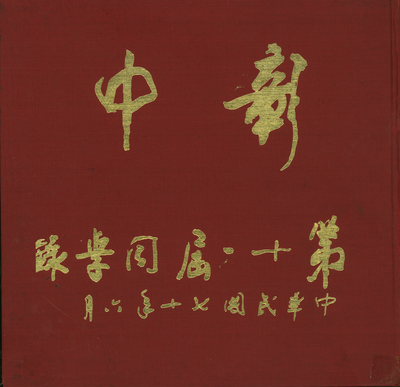 新中
第十二屆同學錄
中華民國七十年六月